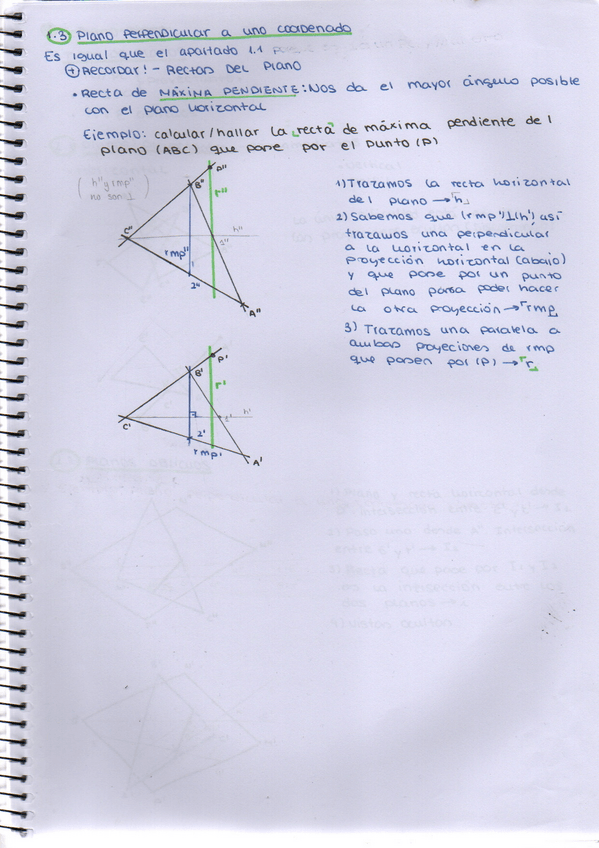 1.3 Plano perpendicular a uno coordenado
Es igual que el apartado 1.1
+ RECORDAR! - RECTAS DEL PLANO
• RECTA DE MÁXIMA PENDIENTE: NOS da el mayor ángulo posible
con el plano horizontal
Ejemplo: calcular/hallar la recta de máxima pendiente del
plano (ABC) que pase por el punto (P)
( h'' y rmp''
no son ⊥ )
B''
r''
C''
h''
1''
rmp''
2''
A''
1) Trazamos la recta horizontal
del plano → h
2) Sabemos que (rmp'⊥h'), así
trazamos una perpendicular
a la horizontal en la
proyección horizontal (abajo)
y que pase por un punto
del plano para poder hacer
la otra proyección → rmp
3) Trazamos una paralela a
ambas proyeciones de rmp
que pasen por (P) → r
P'
B'
r'
C'
1'
h'
2'
rmp'
A'